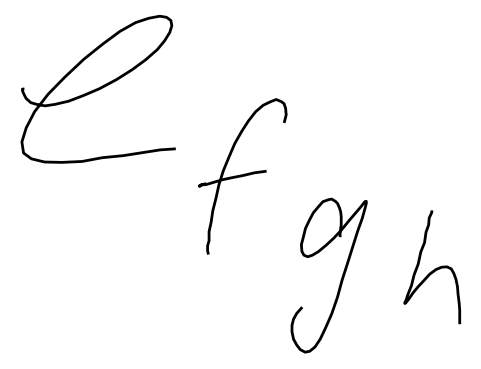 e f g h